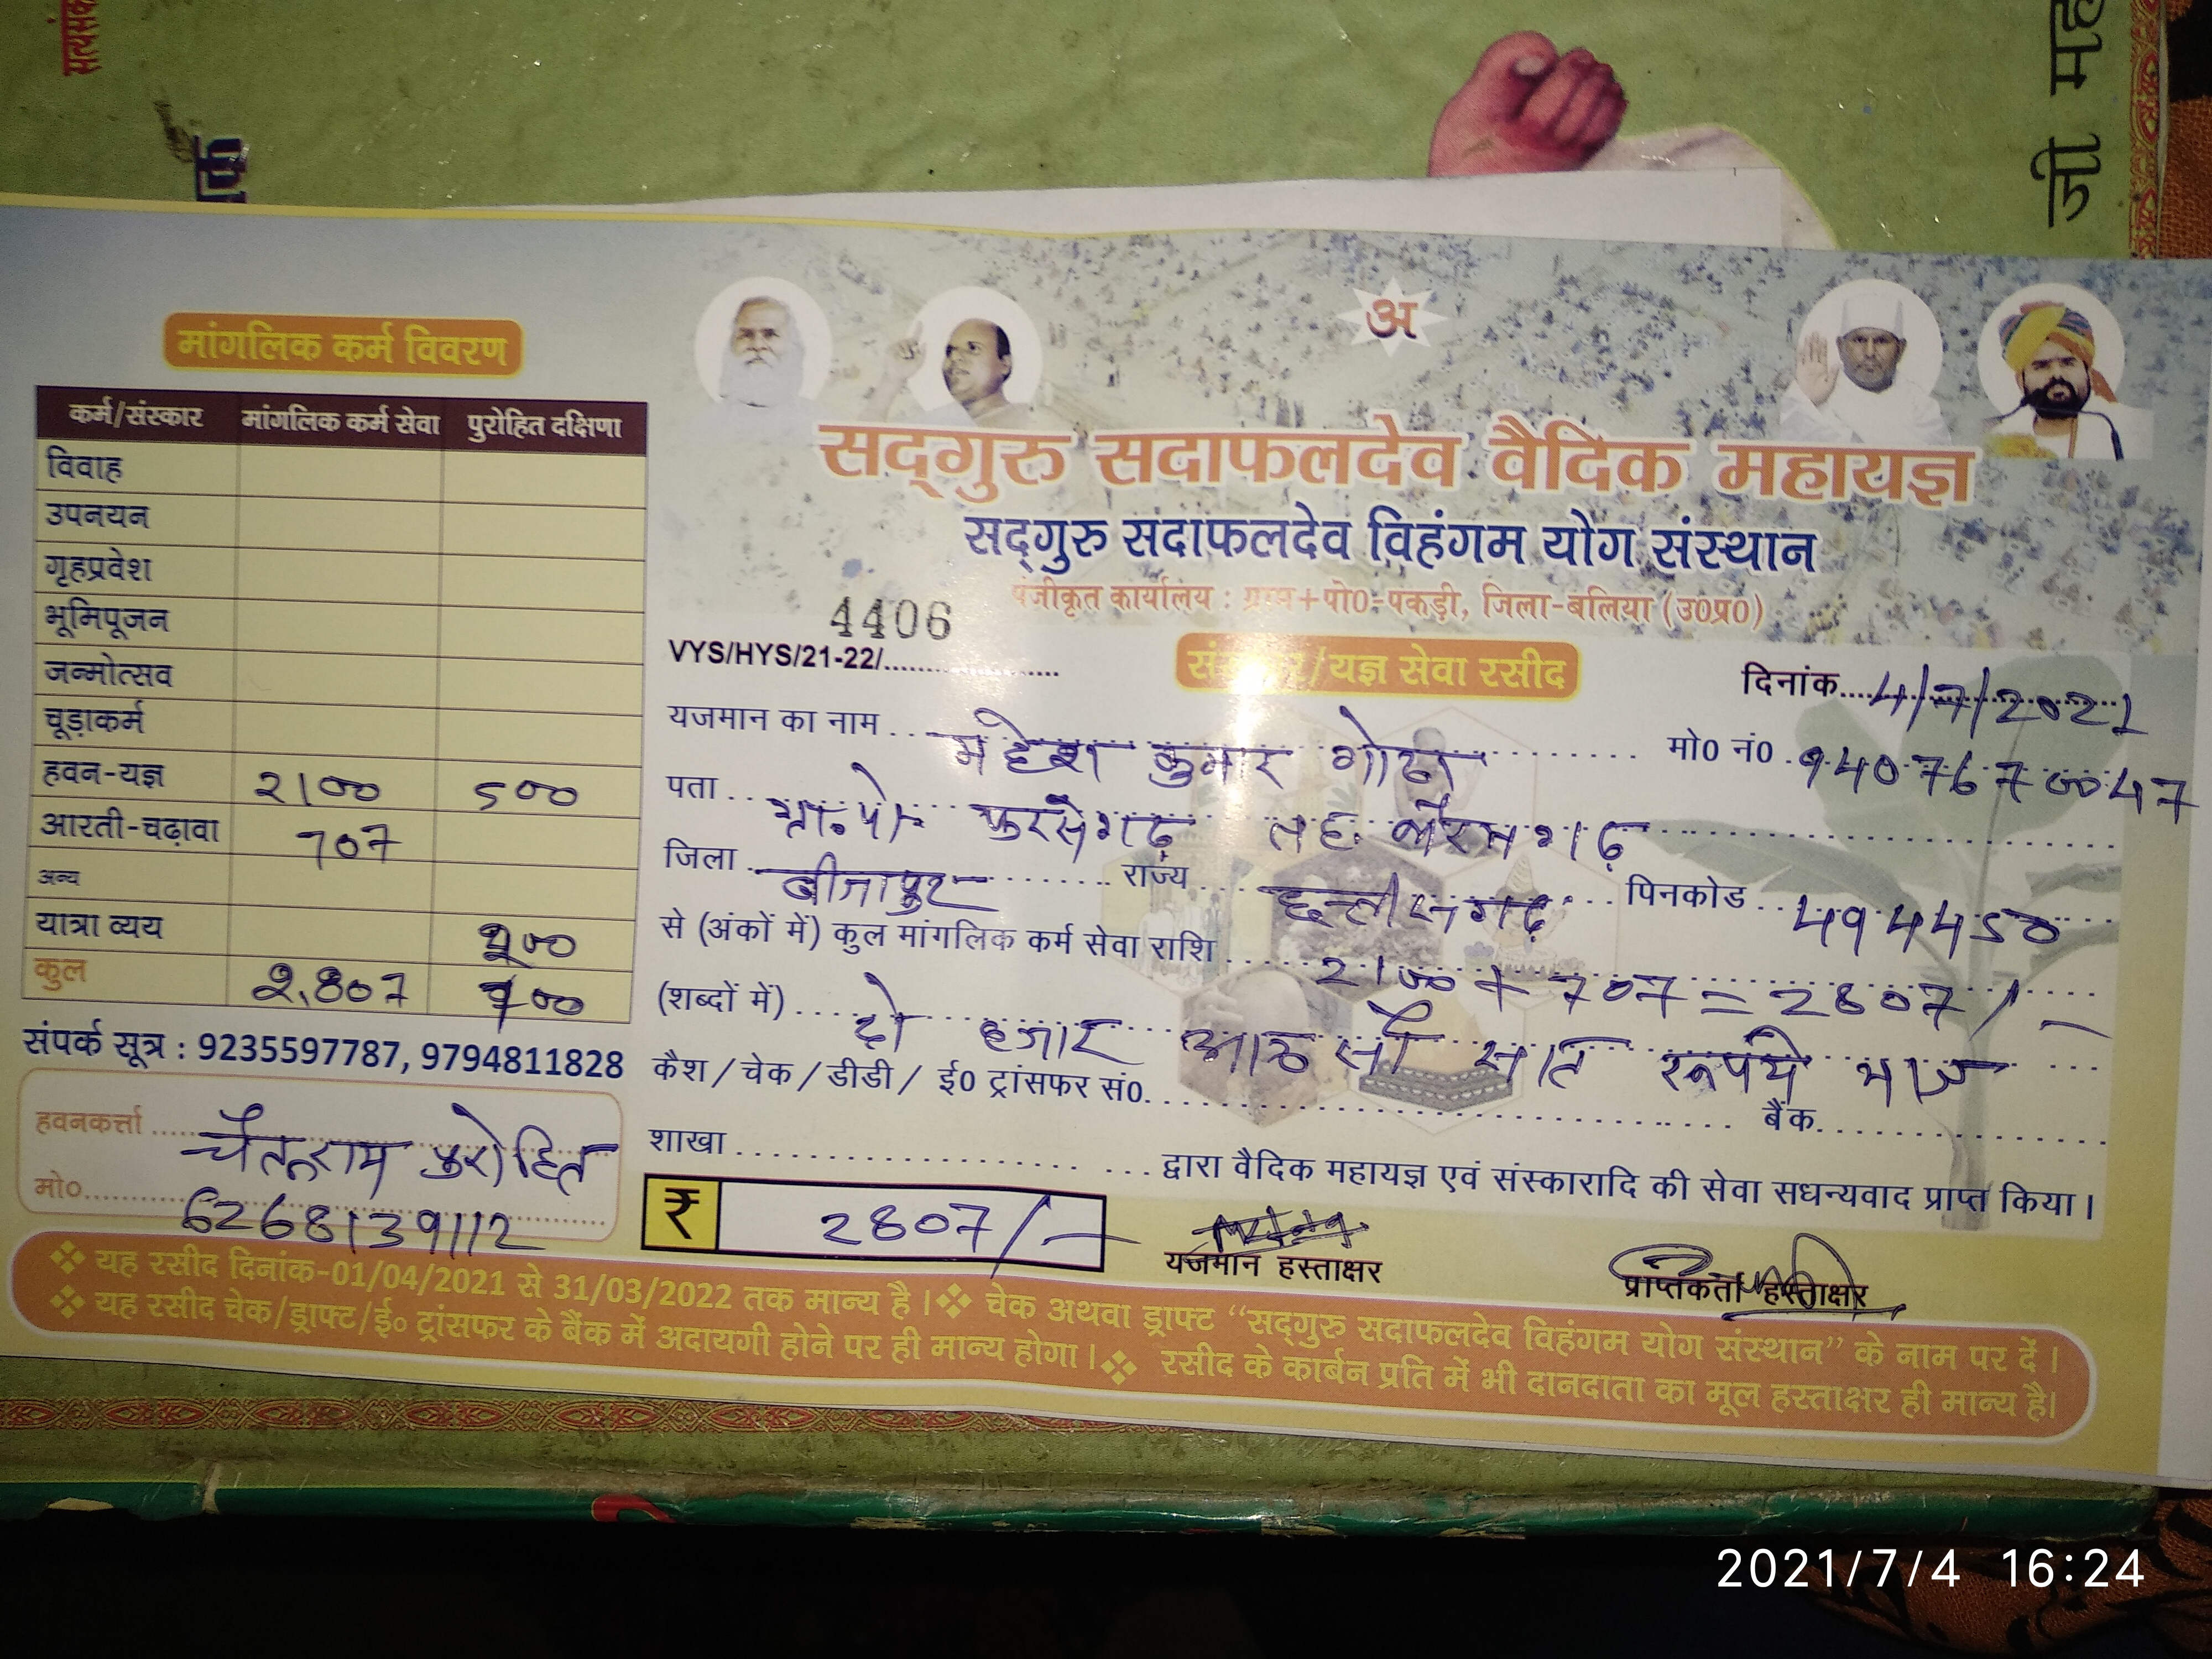 सत्यसंक
र्क
जी मह
अ
मांगलिक कर्म विवरण
कर्म/संस्कार मांगलिक कर्म सेवा पुरोहित दक्षिणा
विवाह
उपनयन
गृहप्रवेश
भूमिपूजन
जन्मोत्सव
चूड़ाकर्म
हवन-यज्ञ 2100 500
आरती-चढ़ावा 707
अन्य
यात्रा व्यय 200
कुल 2,807 700
संपर्क सूत्र : 9235597787, 9794811828
हवनकर्त्ता चैतराम पुरोहित
मो० 6268139112
सद्गुरु सदाफलदेव वैदिक महायज्ञ
सद्गुरु सदाफलदेव विहंगम योग संस्थान
पंजीकृत कार्यालय : ग्राम+पो0-पकड़ी, जिला-बलिया (उ0प्र0)
4406
VYS/HYS/21-22/
संस्कार/यज्ञ सेवा रसीद
दिनांक 4/7/2021
यजमान का नाम महेश कुमार गोटा मो0 नं0
पता ग्रा.पो. फुरसेगढ़ तह. भैरमगढ़
जिला बीजापुर राज्य छत्तीसगढ़ पिनकोड 494450
से (अंकों में) कुल मांगलिक कर्म सेवा राशि 2100 + 707 = 2807/-
(शब्दों में) दो हजार आठ सौ सात रूपये मात्र
कैश / चेक / डीडी / ई0 ट्रांसफर सं0. बैंक
शाखा द्वारा वैदिक महायज्ञ एवं संस्कारादि की सेवा सधन्यवाद प्राप्त किया।
₹ 2807/-
यजमान हस्ताक्षर प्राप्तकर्ता हस्ताक्षर
❖ यह रसीद दिनांक-01/04/2021 से 31/03/2022 तक मान्य है। ❖ चेक अथवा ड्राफ्ट “सद्गुरु सदाफलदेव विहंगम योग संस्थान” के नाम पर दें।
❖ यह रसीद चेक/ड्राफ्ट/ई० ट्रांसफर के बैंक में अदायगी होने पर ही मान्य होगा। ❖ रसीद के कार्बन प्रति में भी दानदाता का मूल हस्ताक्षर ही मान्य है।
2021/7/4 16:24